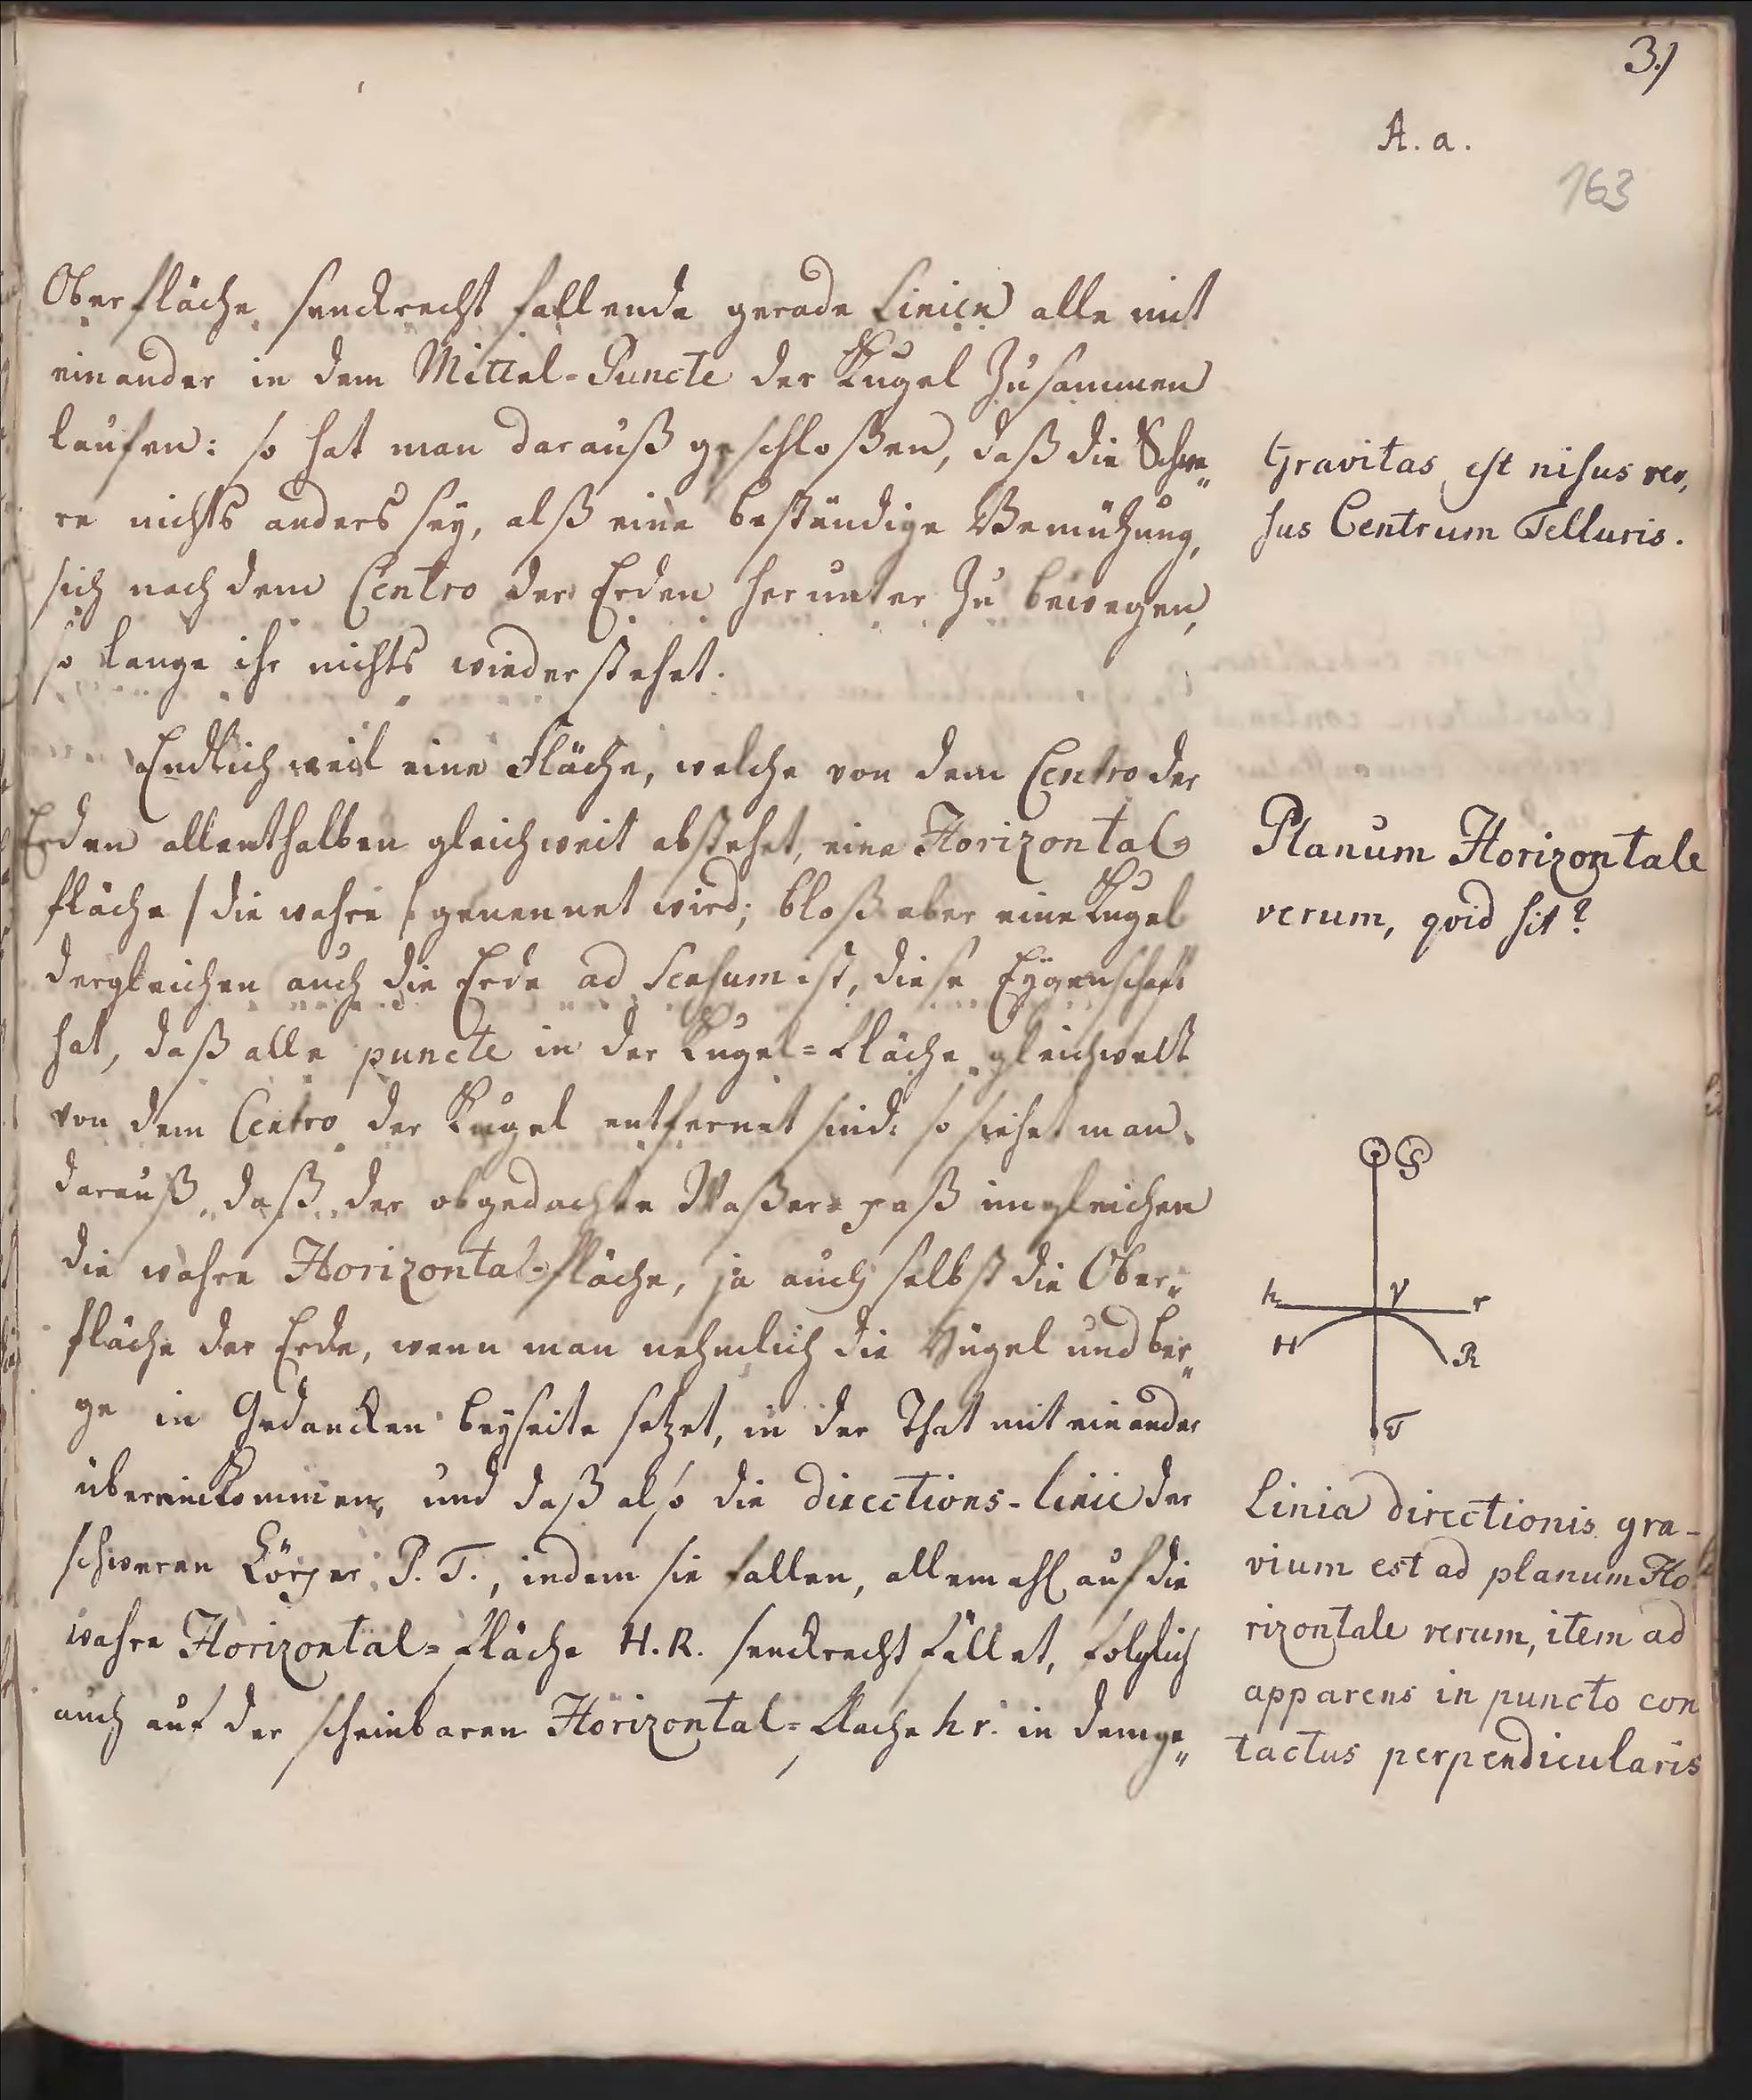 3.)
A. a.
163
Oberfläche senckrecht fallende gerade Linien alle mit
einander in dem Mittel-Puncte der Kugel zusammen
laufen: so hat man darauß geschloßen, daß die Schwe„
re nichts anders sey, alß eine beständige Bemühung,
sich nach dem Centro der Erden herunter zu bewegen,
so lange ihr nichts wiederstehet.
Endlich weil eine Fläche, welche von dem Centro der
Erden allenthalben gleichweit abstehet, eine Horizontal-
fläche / die wahre / genennet wird; bloß aber eine Kugel
dergleichen auch die Erde ad Sensum ist, diese Eygenschaft
hat, daß alle puncte in der Kugel=Fläche gleichweit
von dem Centro der Kugel entfernet sind: so siehet man
darauß, daß der obgedachte Waßer=paß imgleichen
die wahre Horizontal-fläche, ja auch selbst die Ober„
fläche der Erde, wenn man nehmlich die Hügel und ber„
ge in Gedancken beyseite setzet, in der That mit einander
übereinkommen, und daß also die directions-linie der
schweren Cörper P. T., indem sie fallen, allemahl auf die
wahre Horizontal=Fläche H. R. senckrecht fället, folglich
auch auf der scheinbaren Horizontal=Flache h r. in dem ge„
Gravitas est nisus ver,
sus Centrum Telluris.
Planum Horizontale
verum, qvid sit?
P
h V r
H R
T
Linia directionis gra-
vium est ad planum Ho
rizontale verum, item ad
apparens in puncto con
tactus perpendicularis